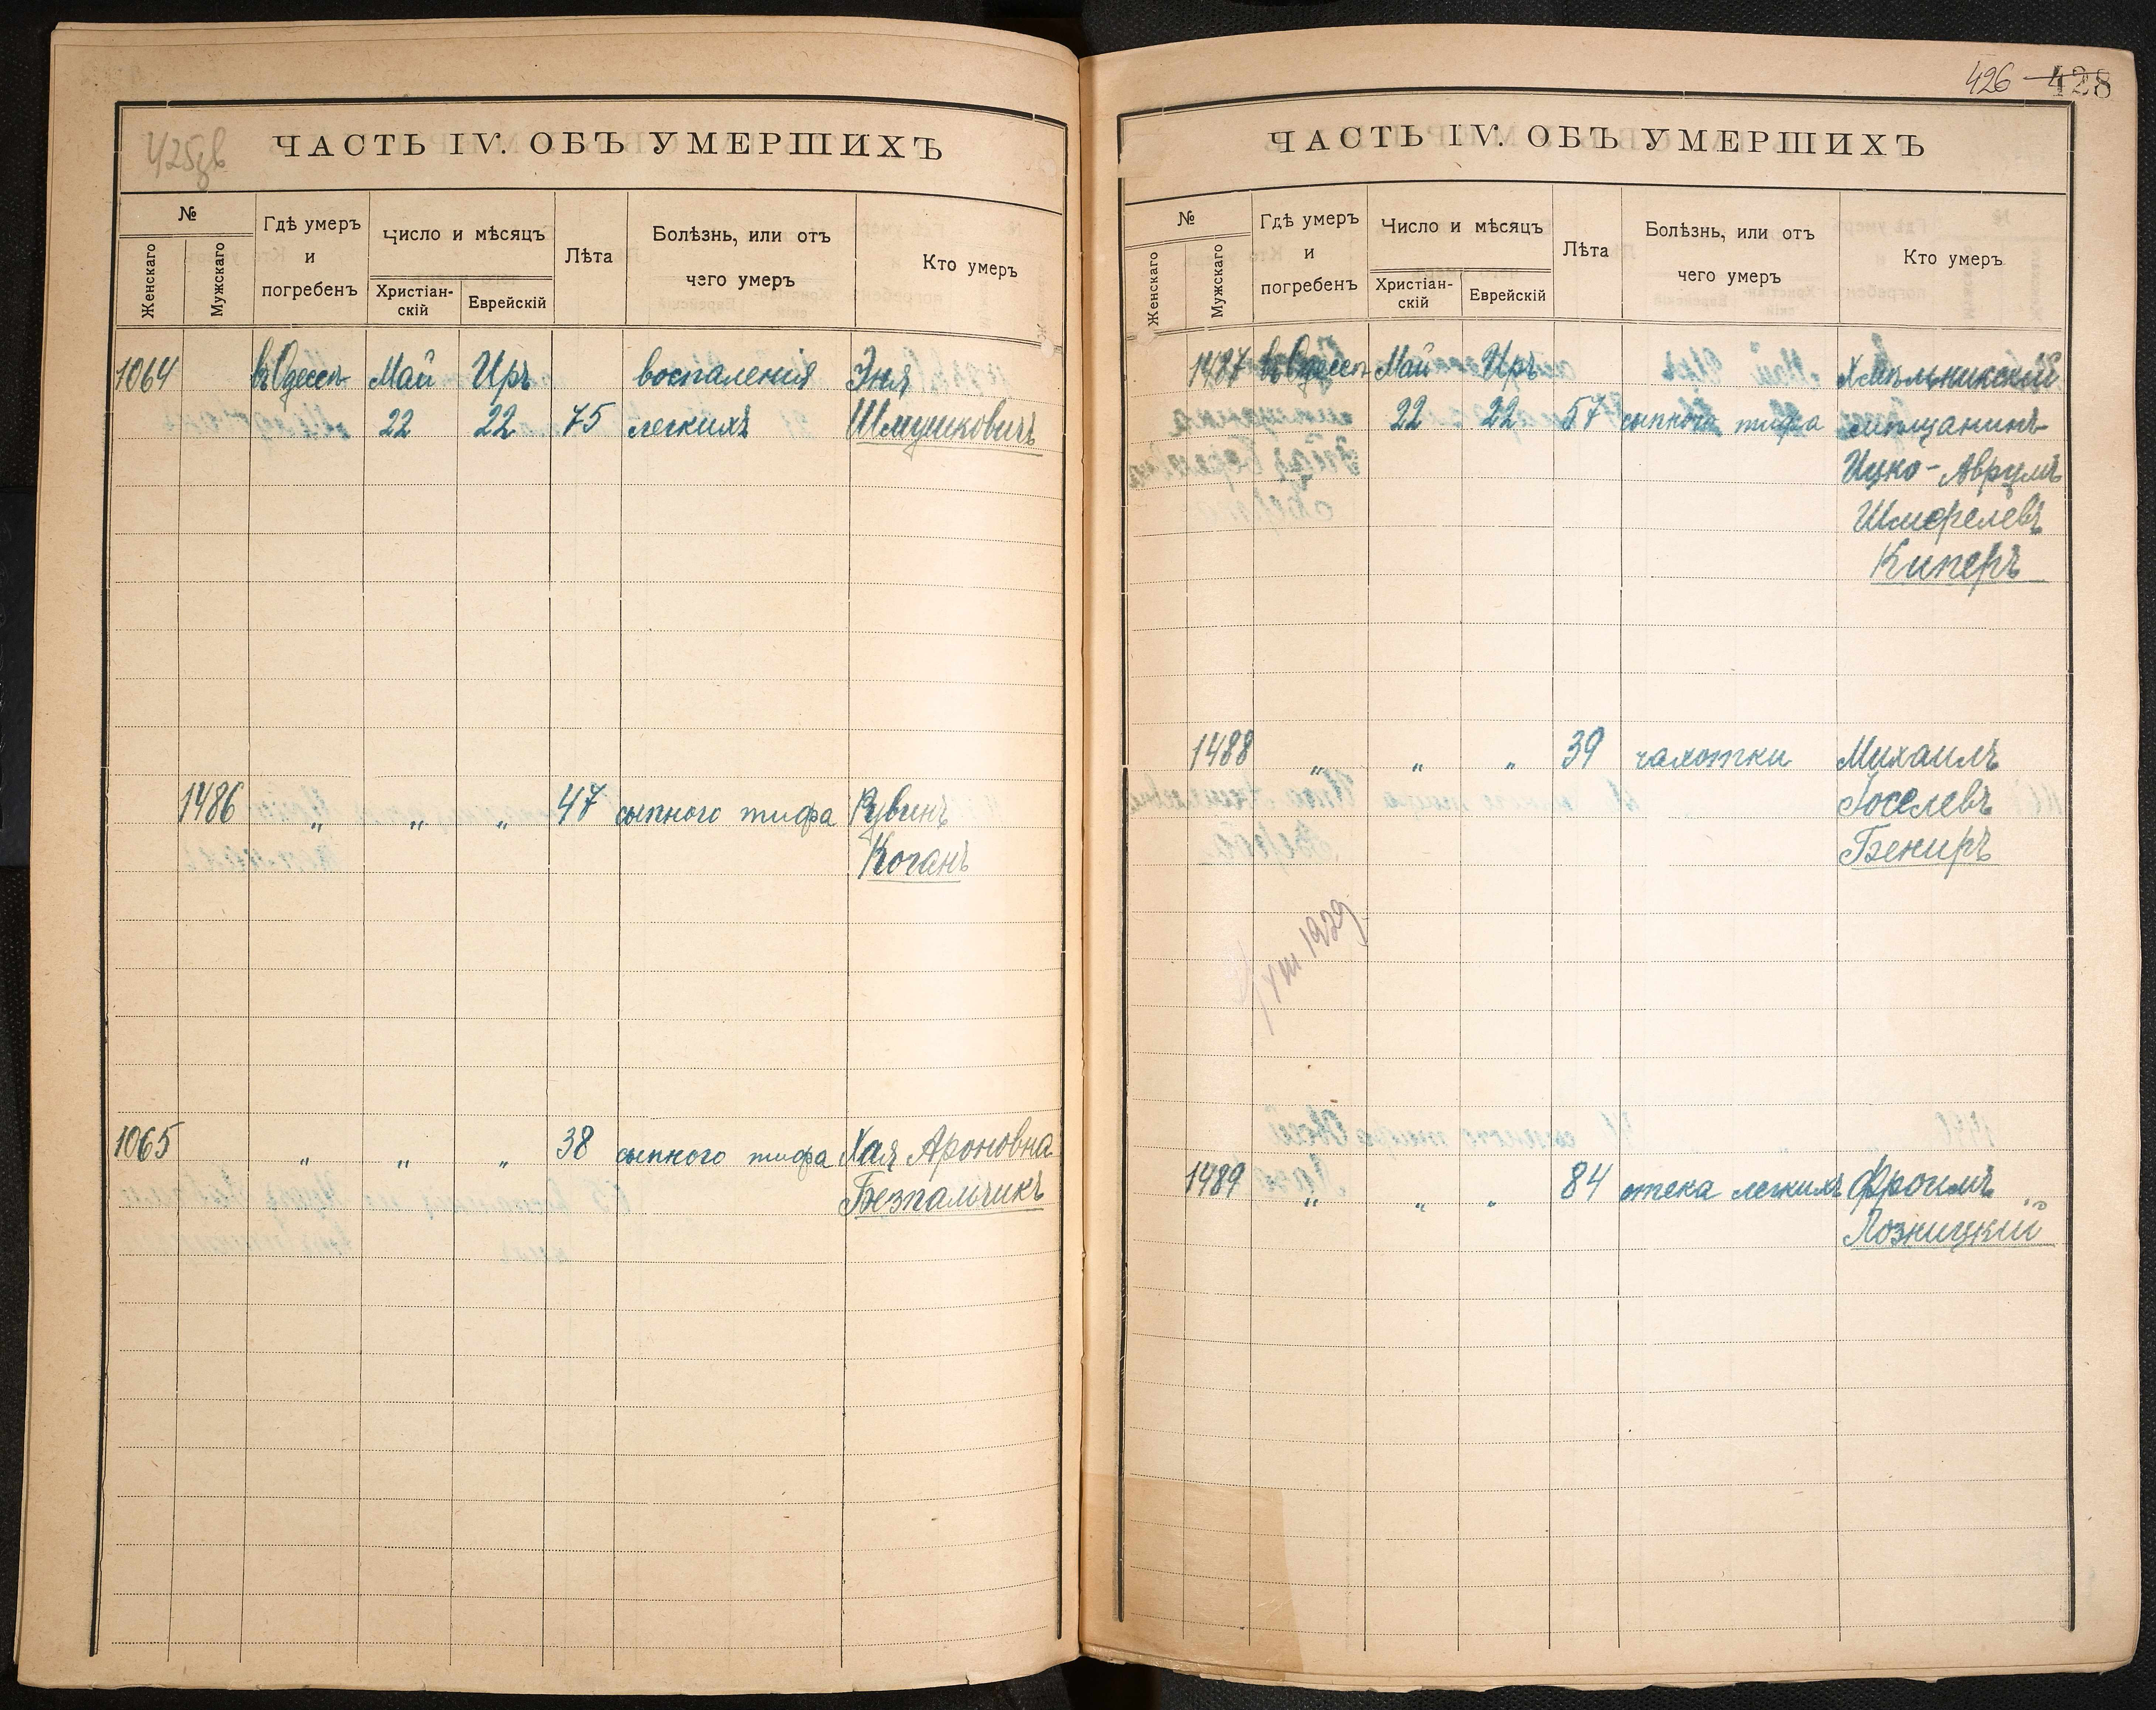 425зв
ЧАСТЬ IV. ОБЪ УМЕРШИХЪ
№
Женскаго
Мужскаго
Гдѣ умеръ
и
погребенъ
Число и мѣсяцъ
Христіан-
скій
Еврейскій
Лѣта
Болѣзнь, или отъ
чего умеръ
Кто умеръ
1064 въ Одессѣ Май Иръ воспаленія Эня
22 22 75 легкихъ Шмушковичъ
1486 " " " 47 сыпного тифа Рувинъ
Коганъ
1065 " " " 38 сыпного тифа Хая Ароновна
Безпальчикъ
426 428
ЧАСТЬ IV. ОБЪ УМЕРШИХЪ
№
Женскаго
Мужскаго
Гдѣ умеръ
и
погребенъ
Число и мѣсяцъ
Христіан-
скій
Еврейскій
Лѣта
Болѣзнь, или отъ
чего умеръ
Кто умеръ
1487 въ Одессѣ Май Иръ Хмѣльникскій
22 22 57 сыпного тифа мѣщанинъ
Ицко-Аврумъ
Шмерелевъ
Киперъ
1488 " " " 39 чахотки Михаилъ
Іоселевъ
Бекиръ
VIII 1929
1489 " " " 84 отека легкихъ Фроимъ
Лозницкій